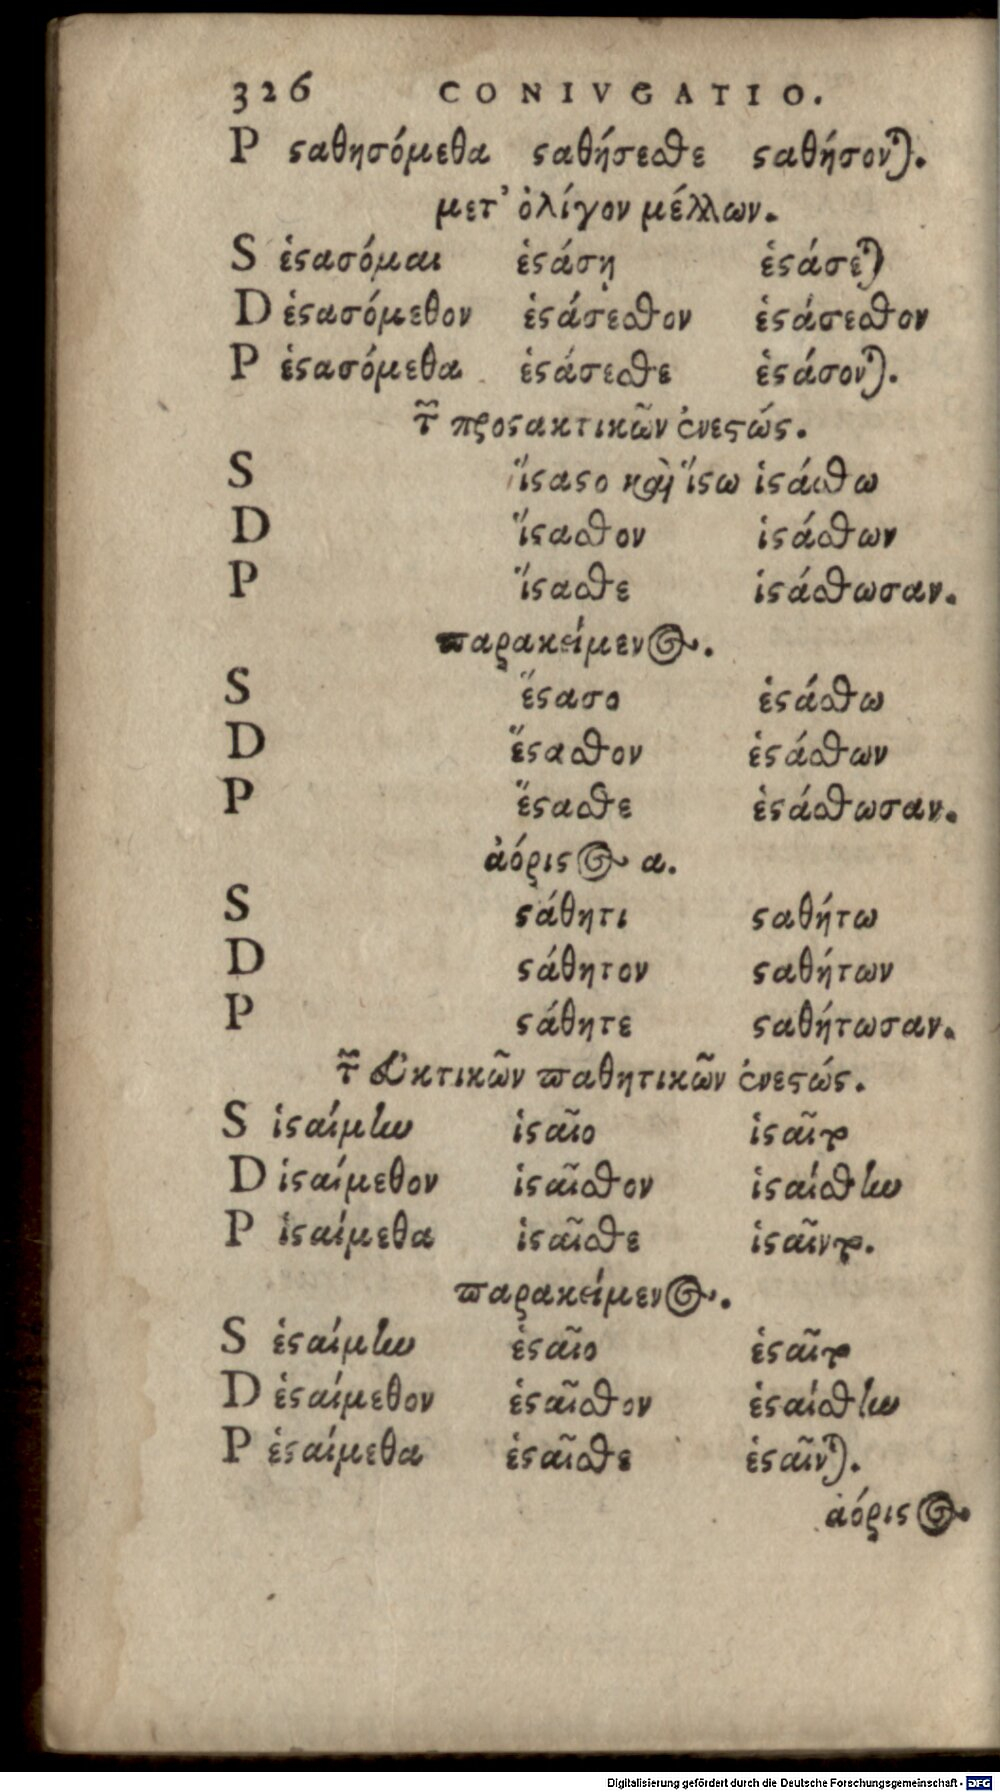 326 CONIVGATIO.
P ϛαθησόμεθα ϛαθήσεσθε ϛαθήσονται.
μετ' ὀλίγον μέλλων.
S ἑϛασόμαι ἑϛάσῃ ἑϛάσεται
D ἑϛασόμεθον ἑϛάσεσθον ἑϛάσεσθον
P ἑϛασόμεθα ἑϛάσεσθε ἑϛάσονται.
τ̃ προϛακτικῶν ἐνεϛώς.
S ἵϛασο καὶ ἵϛω ἱϛάσθω
D ἵϛασθον ἱϛάσθων
P ἵϛασθε ἱϛάσθωσαν.
παρακείμενος.
S ἕϛασο ἑϛάσθω
D ἕϛασθον ἑϛάσθων
P ἕϛασθε ἑϛάσθωσαν.
ἀόριϛος α.
S ϛάθητι ϛαθήτω
D ϛάθητον ϛαθήτων
P ϛάθητε ϛαθήτωσαν.
τ̃ εὐκτικῶν παθητικῶν ἐνεϛώς.
S ἱϛαίμην ἱϛαῖο ἱϛαῖτο
D ἱϛαίμεθον ἱϛαῖσθον ἱϛαίσθην
P ἱϛαίμεθα ἱϛαῖσθε ἱϛαῖντο.
παρακείμενος.
S ἑϛαίμην ἑϛαῖο ἑϛαῖτο
D ἑϛαίμεθον ἑϛαῖσθον ἑϛαίσθην
P ἑϛαίμεθα ἑϛαῖσθε ἑϛαῖνται.
ἀόριϛος
Digitalisierung gefördert durch die Deutsche Forschungsgemeinschaft - DFG